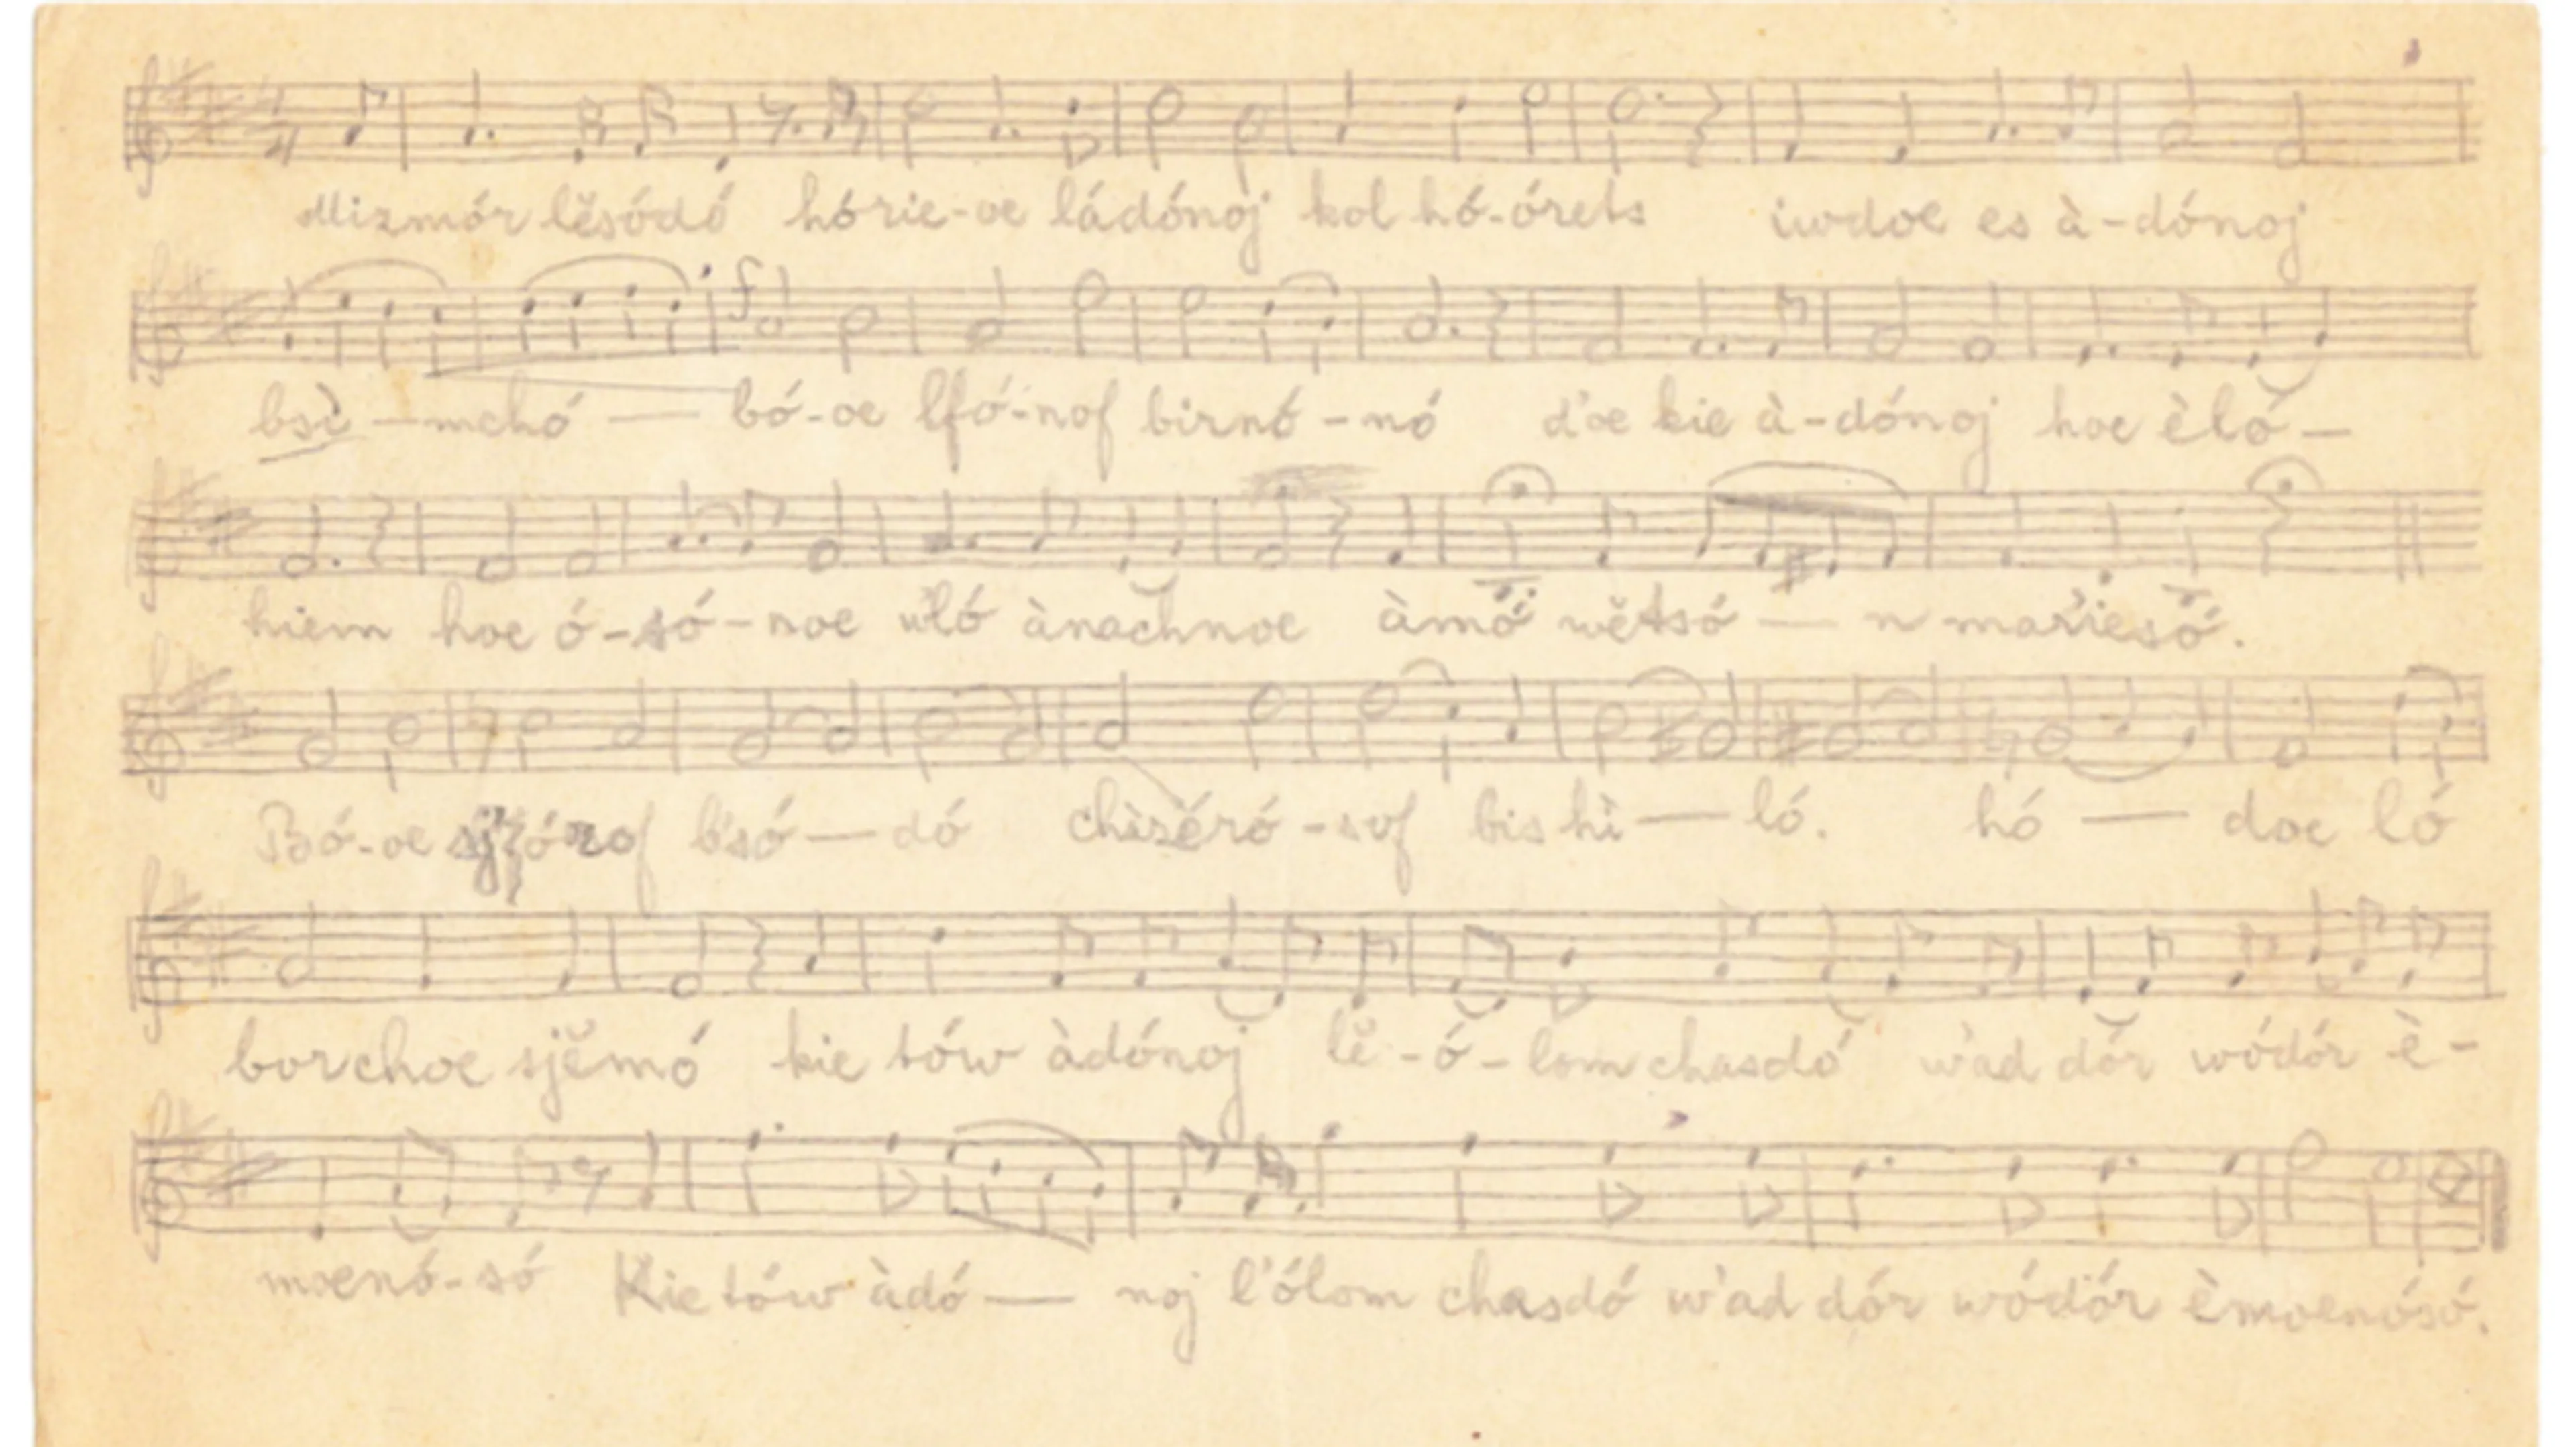 Mizmór lĕsódó hórie-oe ládónoj kol hó-órets iwdoe es à-dónoj
bsì — mchó — bó-oe lfó-nof birnó-nó d'oe kie à-dónoj hoe èló —
hiem hoe ó-só-noe wló ànachnoe àmó wĕtsó — n marìesó.
Bó-oe b'só — dó chìsĕró-sof bishì — ló. hó — doe ló
borchoe sjĕmó kie tów àdónoj lĕ-ó-lom chasdó w'ad dór wódór è-
moenó-só Kie tów àdó — noj l'ólom chasdó w'ad dór wódór èmoenósó.